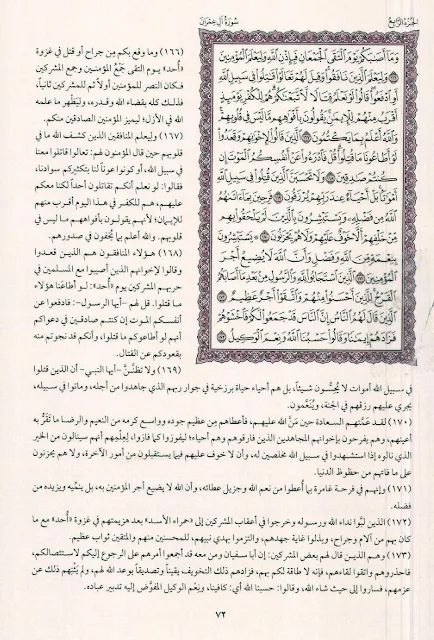 الجزء الرابع
سورة آل عمران
وَمَآ أَصَٰبَكُمْ يَوْمَ ٱلْتَقَى ٱلْجَمْعَانِ فَبِإِذْنِ ٱللَّهِ وَلِيَعْلَمَ ٱلْمُؤْمِنِينَ
١٦٦ وَلِيَعْلَمَ ٱلَّذِينَ نَافَقُوا۟ وَقِيلَ لَهُمْ تَعَالَوْا۟ قَٰتِلُوا۟ فِى سَبِيلِ ٱللَّهِ
أَوِ ٱدْفَعُوا۟ قَالُوا۟ لَوْ نَعْلَمُ قِتَالًا لَّٱتَّبَعْنَٰكُمْ هُمْ لِلْكُفْرِ يَوْمَئِذٍ
أَقْرَبُ مِنْهُمْ لِلْإِيمَٰنِ يَقُولُونَ بِأَفْوَٰهِهِم مَّا لَيْسَ فِى قُلُوبِهِمْ
وَٱللَّهُ أَعْلَمُ بِمَا يَكْتُمُونَ ١٦٧ ٱلَّذِينَ قَالُوا۟ لِإِخْوَٰنِهِمْ وَقَعَدُوا۟
لَوْ أَطَاعُونَا مَا قُتِلُوا۟ قُلْ فَٱدْرَءُوا۟ عَنْ أَنفُسِكُمُ ٱلْمَوْتَ إِن
كُنتُمْ صَٰدِقِينَ ١٦٨ وَلَا تَحْسَبَنَّ ٱلَّذِينَ قُتِلُوا۟ فِى سَبِيلِ ٱللَّهِ
أَمْوَٰتًۢا بَلْ أَحْيَآءٌ عِندَ رَبِّهِمْ يُرْزَقُونَ ١٦٩ فَرِحِينَ بِمَآ ءَاتَىٰهُمُ
ٱللَّهُ مِن فَضْلِهِۦ وَيَسْتَبْشِرُونَ بِٱلَّذِينَ لَمْ يَلْحَقُوا۟ بِهِم
مِّنْ خَلْفِهِمْ أَلَّا خَوْفٌ عَلَيْهِمْ وَلَا هُمْ يَحْزَنُونَ ١٧٠ يَسْتَبْشِرُونَ
بِنِعْمَةٍ مِّنَ ٱللَّهِ وَفَضْلٍ وَأَنَّ ٱللَّهَ لَا يُضِيعُ أَجْرَ
ٱلْمُؤْمِنِينَ ١٧١ ٱلَّذِينَ ٱسْتَجَابُوا۟ لِلَّهِ وَٱلرَّسُولِ مِنۢ بَعْدِ مَآ أَصَابَهُمُ
ٱلْقَرْحُ لِلَّذِينَ أَحْسَنُوا۟ مِنْهُمْ وَٱتَّقَوْا۟ أَجْرٌ عَظِيمٌ ١٧٢
ٱلَّذِينَ قَالَ لَهُمُ ٱلنَّاسُ إِنَّ ٱلنَّاسَ قَدْ جَمَعُوا۟ لَكُمْ فَٱخْشَوْهُمْ
فَزَادَهُمْ إِيمَٰنًا وَقَالُوا۟ حَسْبُنَا ٱللَّهُ وَنِعْمَ ٱلْوَكِيلُ ١٧٣
(١٦٦) وما وقع بكم مِن جراح أو قتل في غزوة
«أُحد» يوم التقى جَمْعُ المؤمنين وجمع المشركين
فكان النصر للمؤمنين أولاً ثم للمشركين ثانياً،
فذلك كله بقضاء الله وقدره، وليَظْهر ما علمه
الله في الأزل؛ ليميز المؤمنين الصادقين منكم.
(١٦٧) وليعلم المنافقين الذين كشف الله ما في
قلوبهم حين قال المؤمنون لهم: تعالوا قاتلوا معنا
في سبيل الله، أو كونوا عوناً لنا بتكثيركم سوادنا،
فقالوا: لو نعلم أنكم تقاتلون أحداً لكنا معكم
عليهم، هم للكفر في هذا اليوم أقرب منهم
للإيمان؛ لأنهم يقولون بأفواههم ما ليس في
قلوبهم. والله أعلم بما يُخفون في صدورهم.
(١٦٨) هؤلاء المنافقون هم الذين قعدوا
وقالوا لإخوانهم الذين أصيبوا مع المسلمين في
حربهم المشركين يوم «أُحد»: لو أطاعنا هؤلاء
ما قتلوا. قل لهم -أيها الرسول-: فادفعوا عن
أنفسكم الموت إن كنتم صادقين في دعواكم
أنهم لو أطاعوكم ما قتلوا، وأنكم قد نجوتم منه
بقعودكم عن القتال.
(١٦٩) ولا تظنَّنَّ -أيها النبي- أن الذين قتلوا
في سبيل الله أموات لا يُحِسُّون شيئاً، بل هم أحياء حياة برزخية في جوار ربهم الذي جاهدوا من أجله، وماتوا في سبيله،
يجري عليهم رزقهم في الجنة، ويُنعَّمون.
(١٧٠) لقد عَمَّتهم السعادة حين مَنَّ الله عليهم، فأعطاهم مِن عظيم جوده وواسع كرمه من النعيم والرضا ما تَقَرُّ به
أعينهم، وهم يفرحون بإخوانهم المجاهدين الذين فارقوهم وهم أحياء؛ ليفوزوا كما فازوا، لِعِلْمِهم أنهم سينالون من الخير
الذي نالوه إذا استشهدوا في سبيل الله مخلصين له، وأن لا خوف عليهم فيما يستقبلون من أمور الآخرة، ولا هم يحزنون
على ما فاتهم من حظوظ الدنيا.
(١٧١) وإنهم في فرحة غامرة بما أُعطوا من نعم الله وجزيل عطائه، وأن الله لا يضيع أجر المؤمنين به، بل ينمِّيه ويزيده من
فضله.
(١٧٢) الذين لبُّوا نداء الله ورسوله وخرجوا في أعقاب المشركين إلى «حمراء الأسد» بعد هزيمتهم في غزوة «أُحد» مع ما
كان بهم من آلام وجراح، وبذلوا غاية جهدهم، والتزموا بهدي نبيهم، للمحسنين منهم والمتقين ثواب عظيم.
(١٧٣) وهم الذين قال لهم بعض المشركين: إن أبا سفيان ومن معه قد أجمعوا أمرهم على الرجوع إليكم لاستئصالكم،
فاحذروهم واتقوا لقاءهم، فإنه لا طاقة لكم بهم، فزادهم ذلك التخويف يقيناً وتصديقاً بوعد الله لهم، ولم يَثْنِهم ذلك عن
عزمهم، فساروا إلى حيث شاء الله، وقالوا: حسبنا الله أي: كافينا، ونِعْم الوكيل المفوَّض إليه تدبير عباده.
٧٢